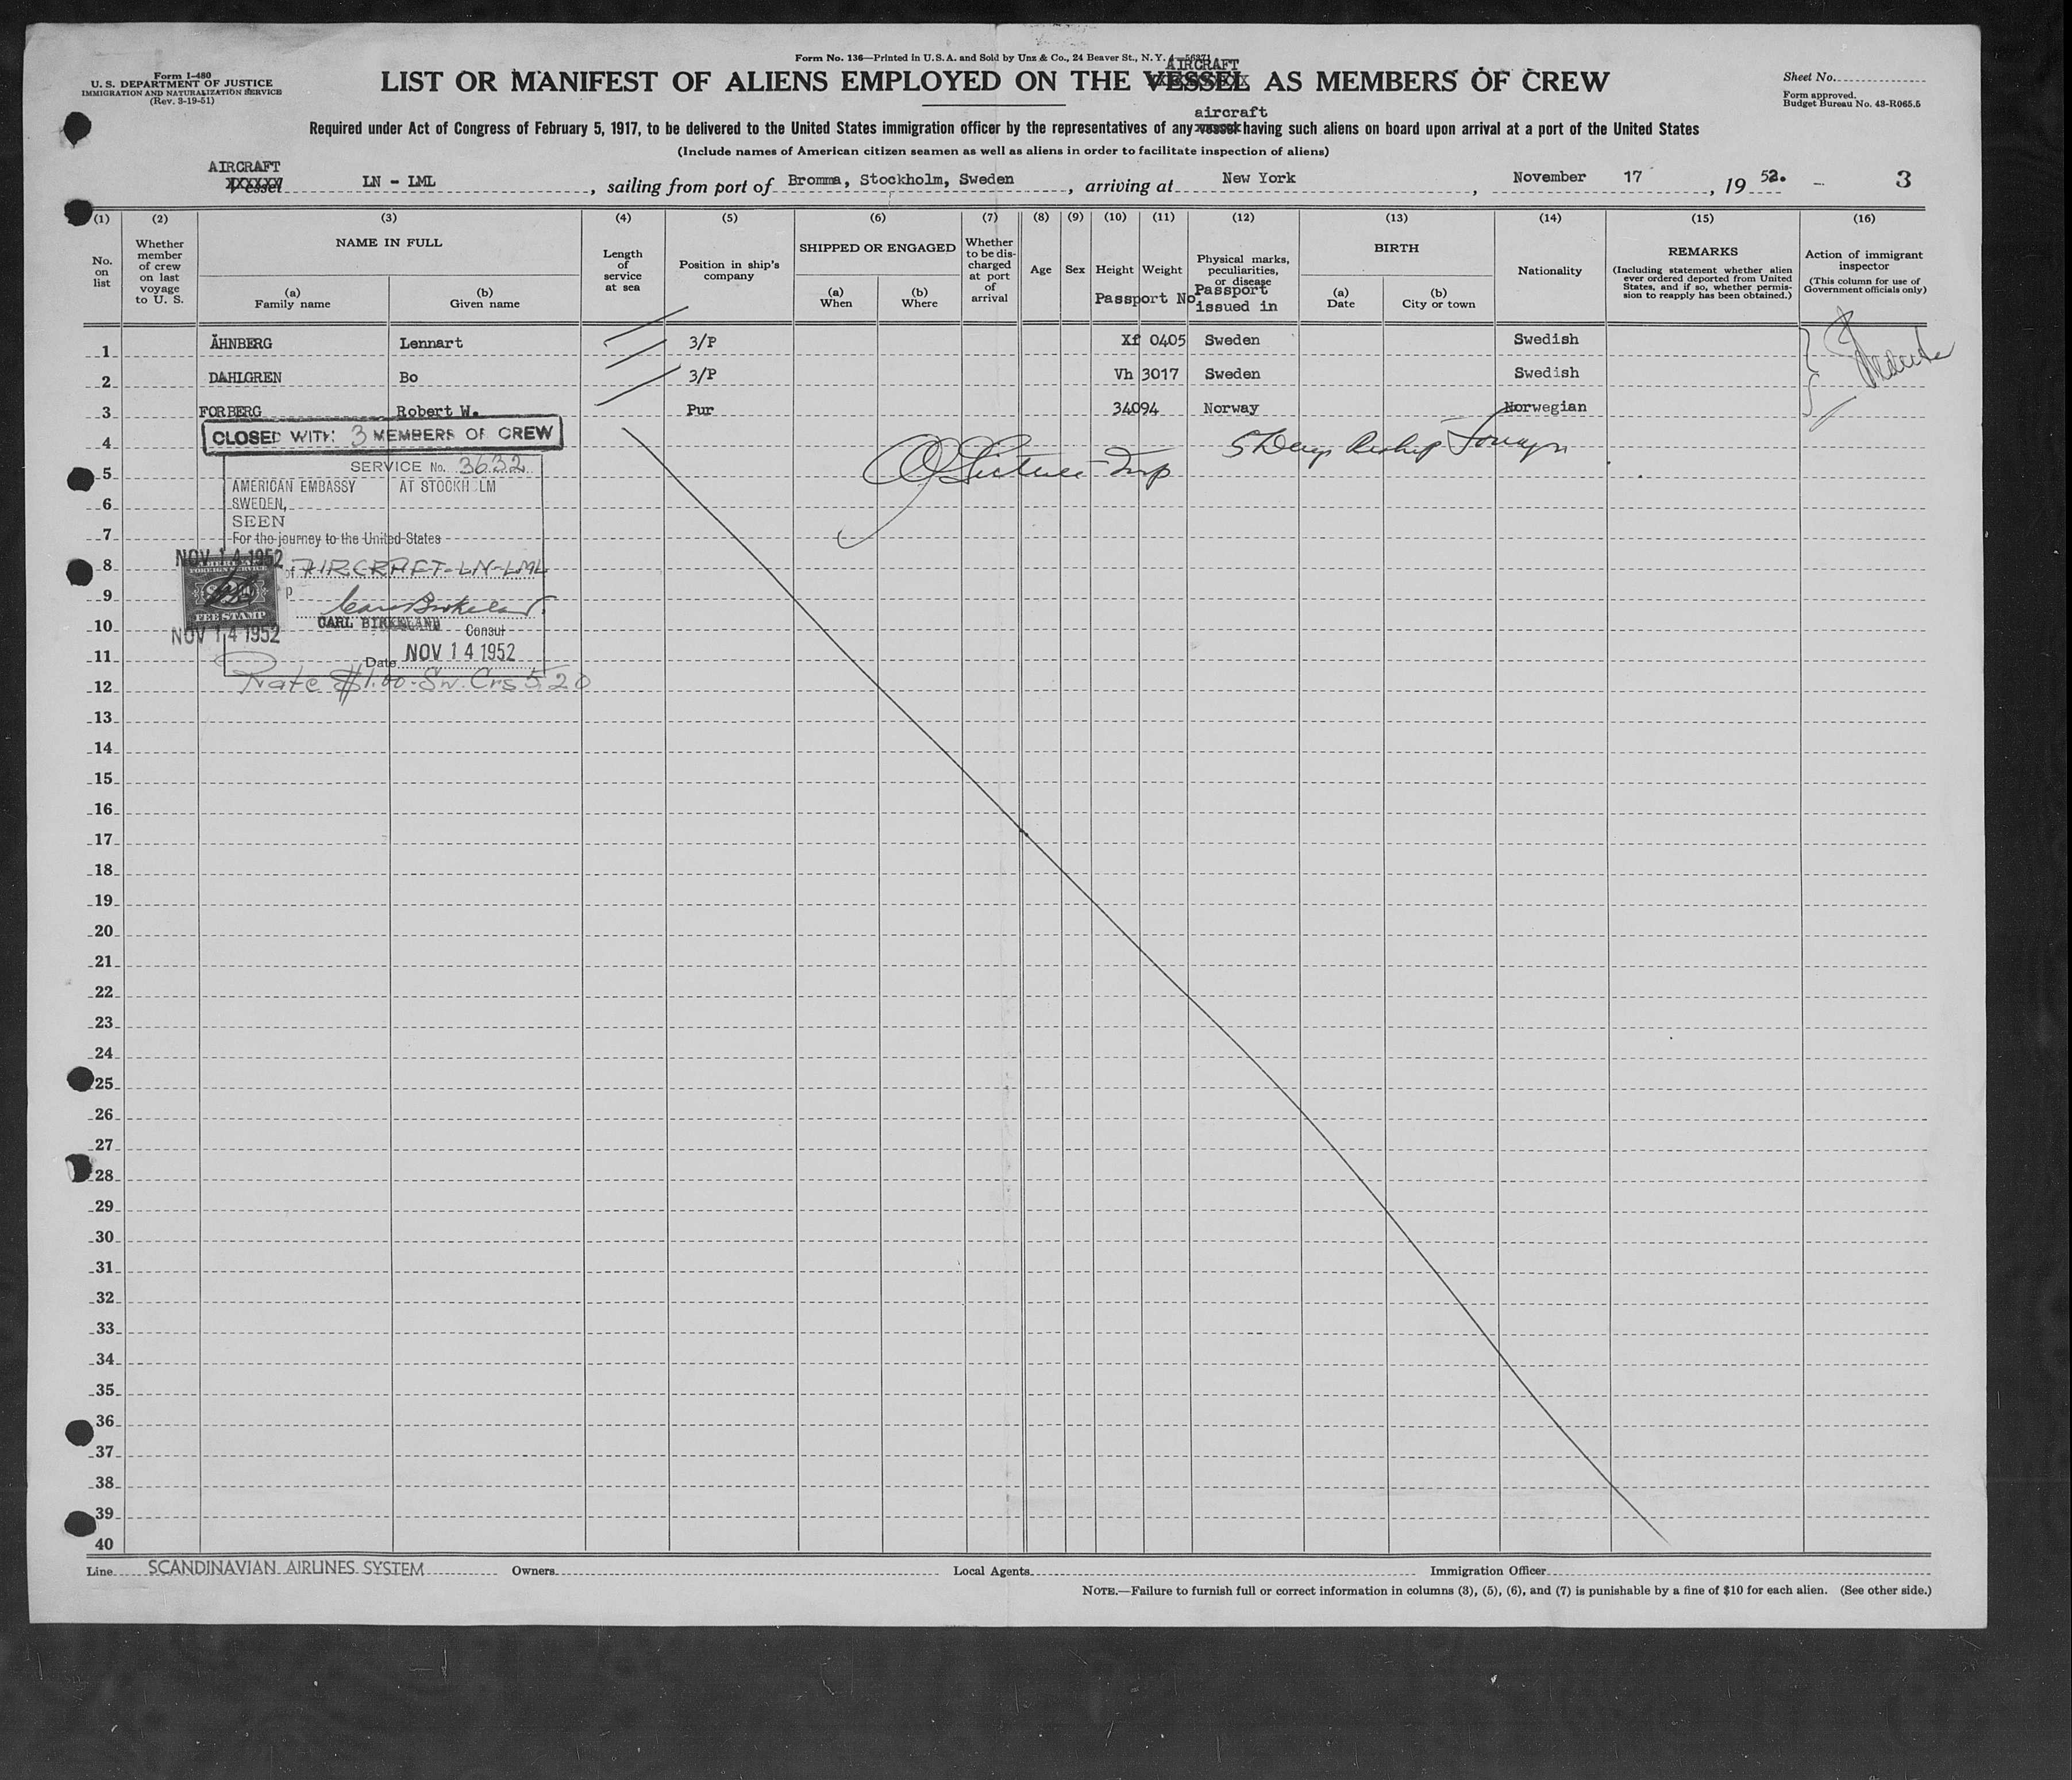 Form No. 136—Printed in U.S.A. and Sold by Unz & Co., 24 Beaver St., N. Y. 4
Form I-480
U. S. DEPARTMENT OF JUSTICE
IMMIGRATION AND NATURALIZATION SERVICE
(Rev. 3-19-51)
AIRCRAFT
LIST OR MANIFEST OF ALIENS EMPLOYED ON THE VESSEL AS MEMBERS OF CREW
Sheet No.
Form approved.
Budget Bureau No. 43-R065.5
aircraft
Required under Act of Congress of February 5, 1917, to be delivered to the United States immigration officer by the representatives of any vessel having such aliens on board upon arrival at a port of the United States
(Include names of American citizen seamen as well as aliens in order to facilitate inspection of aliens)
AIRCRAFT
Vessel LN - LML, sailing from port of Bromma, Stockholm, Sweden, arriving at New York, November 17, 1952. - 3
(1) (2) (3) (4) (5) (6) (7) (8) (9) (10) (11) (12) (13) (14) (15) (16)
No. on list
Whether member of crew on last voyage to U. S.
NAME IN FULL
(a) Family name
(b) Given name
Length of service at sea
Position in ship's company
SHIPPED OR ENGAGED
(a) When
(b) Where
Whether to be discharged at port of arrival
Age
Sex
Height
Weight
Passport No
Physical marks, peculiarities, or disease
Passport issued in
BIRTH
(a) Date
(b) City or town
Nationality
REMARKS
(Including statement whether alien ever ordered deported from United States, and if so, whether permission to reapply has been obtained.)
Action of immigrant inspector
(This column for use of Government officials only)
1 ÄHNBERG Lennart 3/P Xf 0405 Sweden Swedish
2 DAHLGREN Bo 3/P Vh 3017 Sweden Swedish
3 FORBERG Robert W. Pur 34094 Norway Norwegian
CLOSED WITH: 3 MEMBERS OF CREW
4
SERVICE No. 3632
5
AMERICAN EMBASSY AT STOCKHOLM
SWEDEN,
6
SEEN
7
For the journey to the United States
NOV 14 1952
8
of AIRCRAFT-LN-LML
AMERICAN
FOREIGN SERVICE
FEE STAMP
9
Carl Birkeland
10
CARL BIRKELAND
Consul
NOV 14 1952
11
Date NOV 14 1952
Rate $1.00-Sw. Crs 5.20
12
13
14
15
16
17
18
19
20
21
22
23
24
25
26
27
28
29
30
31
32
33
34
35
36
37
38
39
40
Line SCANDINAVIAN AIRLINES SYSTEM Owners Local Agents Immigration Officer
NOTE.—Failure to furnish full or correct information in columns (3), (5), (6), and (7) is punishable by a fine of $10 for each alien. (See other side.)